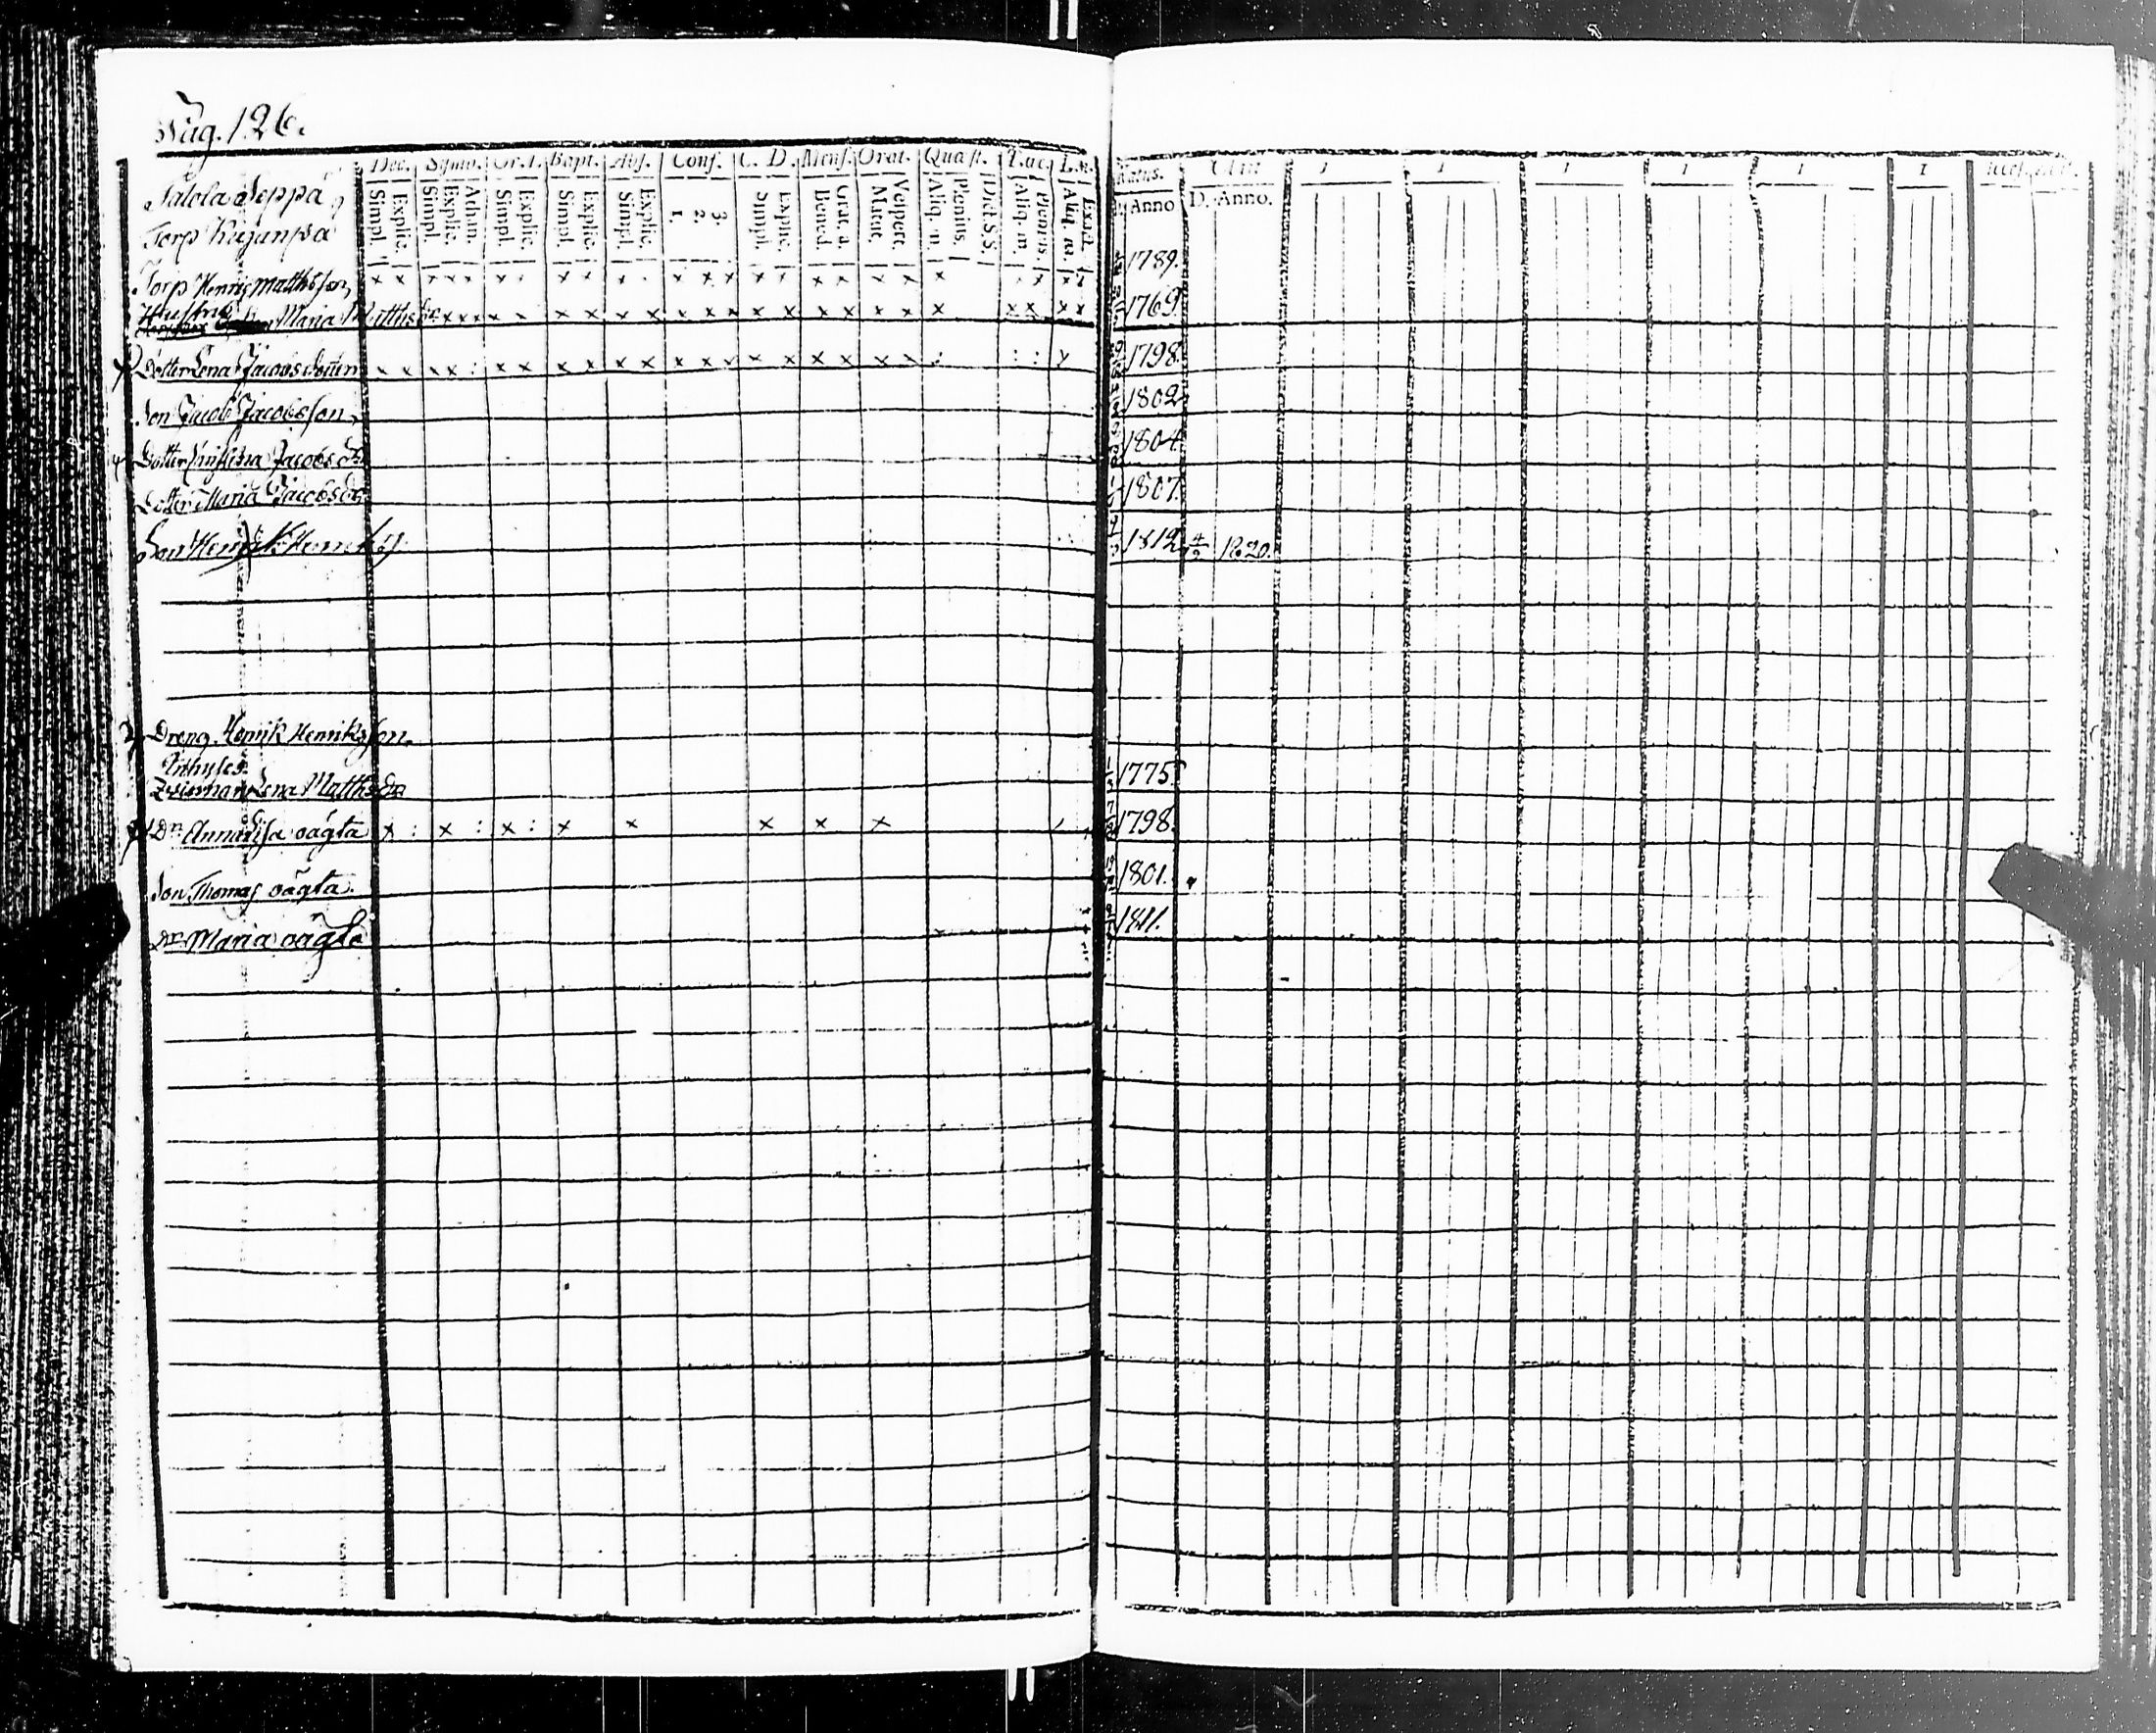 Pag. 126.
Dec. Symb. Or. D. Bapt. Abs. Conf. C. D. Mens. Orat. Quæst. T. ac L. n.
Simpl. Explic. Simpl. Explic. Athan. Simpl. Explic. Simpl. Explic. Simpl. Explic. 1. 2. 3. Simpl. Explic. Bened. Grat. a. Matut. Vespert. Aliq. m. Plenius. Dict. S.S. Aliq. m. Plenius. Aliq. m. Exact.
Natus. Obiit 1 1 1 1 1 1
Anno D. Anno.
Jalola Seppä
Torp Kujanpää
Torp Henric Matthsson, 1789.
Hustru Maria Matthsdr 1769.
Dotter Lena Jacobsdotter 1798.
Son Jacob Jacobsson, 1802
Dotter Christina Jacobs Dr 1804
Dotter Maria Jacobsdr 1807.
Son Henrik Henriks 1812 4/2 1820.
Dreng Henrik Henriksson.
Inhyses
Lena Matths Dr 1775
Dr Annalisa oägta 1798.
Son Thomas oägta. 1801.
Dr Maria oägta 1811.